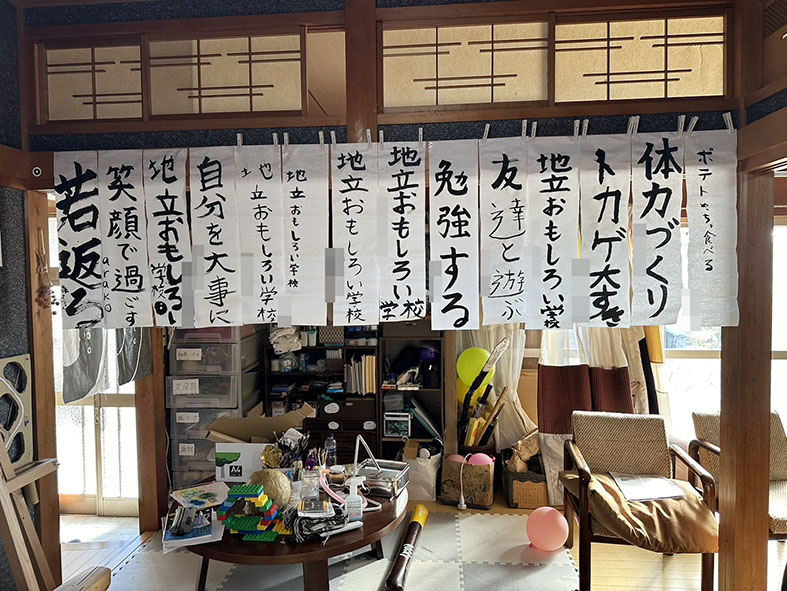 ポテトめっちゃ食べる
体力づくり
トカゲ大すき
地立おもしろい学校
友達と遊ぶ
勉強する
地立おもしろい学校
地立おもしろい学校
地立おもしろい学校
地立おもしろい学校
自分を大事に
地立おもしろい学校
笑顔で過ごす
arako
若返る
文房具
A4